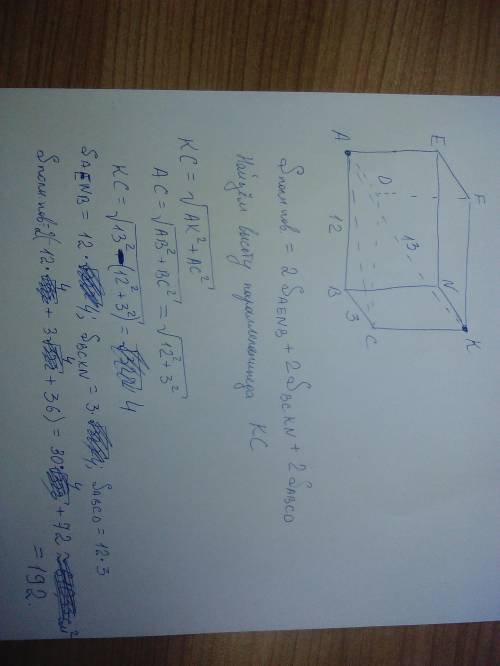 E F
A D 13 N K
12 B 3 C
Sполн пов = 2 SAENB + 2 SBCKN + 2 SABCD
Найдём высоту параллепипеда KC
KC = √AK² + AC²
AC = √AB² + BC² = √12² + 3²
KC = √13² - (12² + 3²) = 4
SAENB = 12 · 4; SBCKN = 3 · ; SABCD = 12 · 3
Sполн пов = 2(12 · 4 + 3 · 4 + 36) = 30 · 4 + 72
= 192.